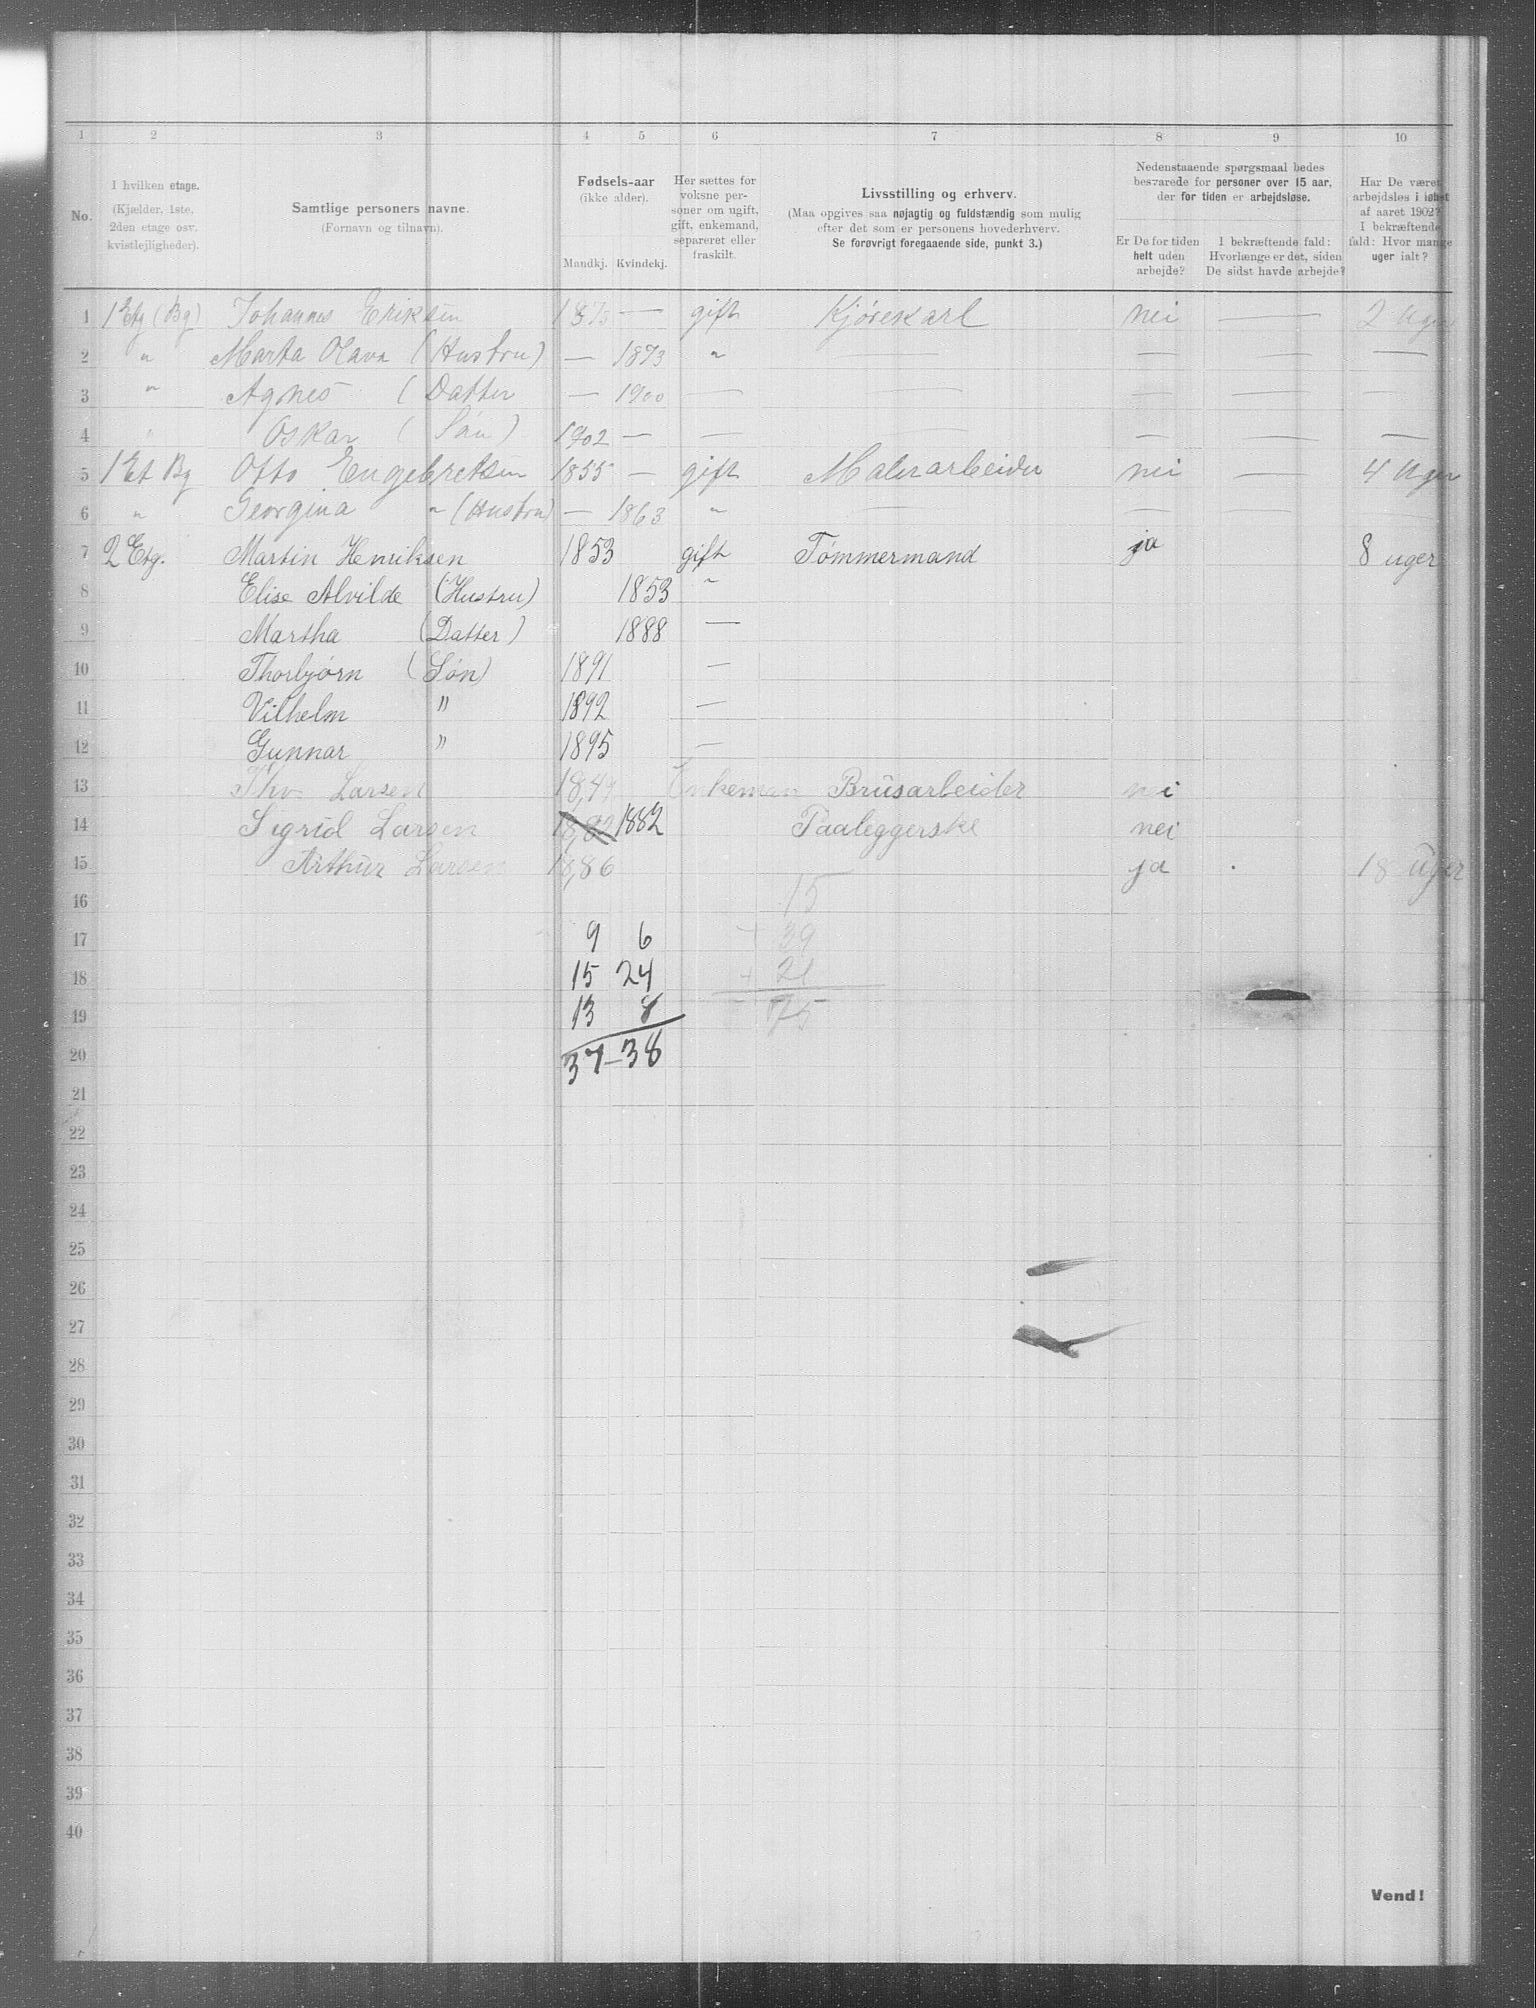 1 2 3 4 5 6 7 8 9 10
No.
I hvilken etage.
(Kjælder, 1ste,
2den etage osv.
kvistlejligheder).
Samtlige personers navne.
(Fornavn og tilnavn).
Fødsels-aar
(ikke alder).
Mandkj. Kvindekj.
Her sættes for
voksne per-
soner om ugift,
gift, enkemand,
separeret eller
fraskilt.
Livsstilling og erhverv.
(Maa opgives saa nøjagtig og fuldstændig som mulig
efter det som er personens hovederhverv.
Se forøvrigt foregaaende side, punkt 3.)
Nedenstaaende spørgsmaal bedes
besvarede for personer over 15 aar,
der for tiden er arbejdsløse.
Er De for tiden
helt uden
arbejde?
I bekræftende fald:
Hvorlænge er det, siden
De sidst havde arbejde?
Har De været
arbejdsløs i løbet
af aaret 1902?
I bekræftende
fald: Hvor mange
uger ialt?
1 1 Etg (Bg) Johannes Eriksen 1873 — gift Kjørekarl nei — 2 Uger
2 " Marta Olava (Hustru) — 1873 " — — — —
3 " Agnes (Datter — 1900 — — — — —
4 " Oskar (Søn) 1902 — — — — — —
5 1 Et Bg Otto Engebretsen 1855 — gift Malerarbeider nei — 4 Uger
6 " Georgina " (Hustru) — 1863 " — — — —
7 2 Etg. Martin Henriksen 1853 gift Tømmermand ja 8 uger
8 Elise Alvilde (Hustru) 1853 "
9 Martha (Datter) 1888 —
10 Thorbjørn (Søn) 1891 —
11 Vilhelm " 1892 —
12 Gunnar " 1895 —
13 Thv. Larsen Enkeman Brusarbeider nei
14 Sigrid Larsen 18,82 1882 Paaleggerske nei
15 Arthur Larsen 18,86 ja 18 Uger
16 15
17 9 6 + 39
18 15 24 + 21
19 13 8 75
20 37—38
21
22
23
24
25
26
27
28
29
30
31
32
33
34
35
36
37
38
39
40
Vend!